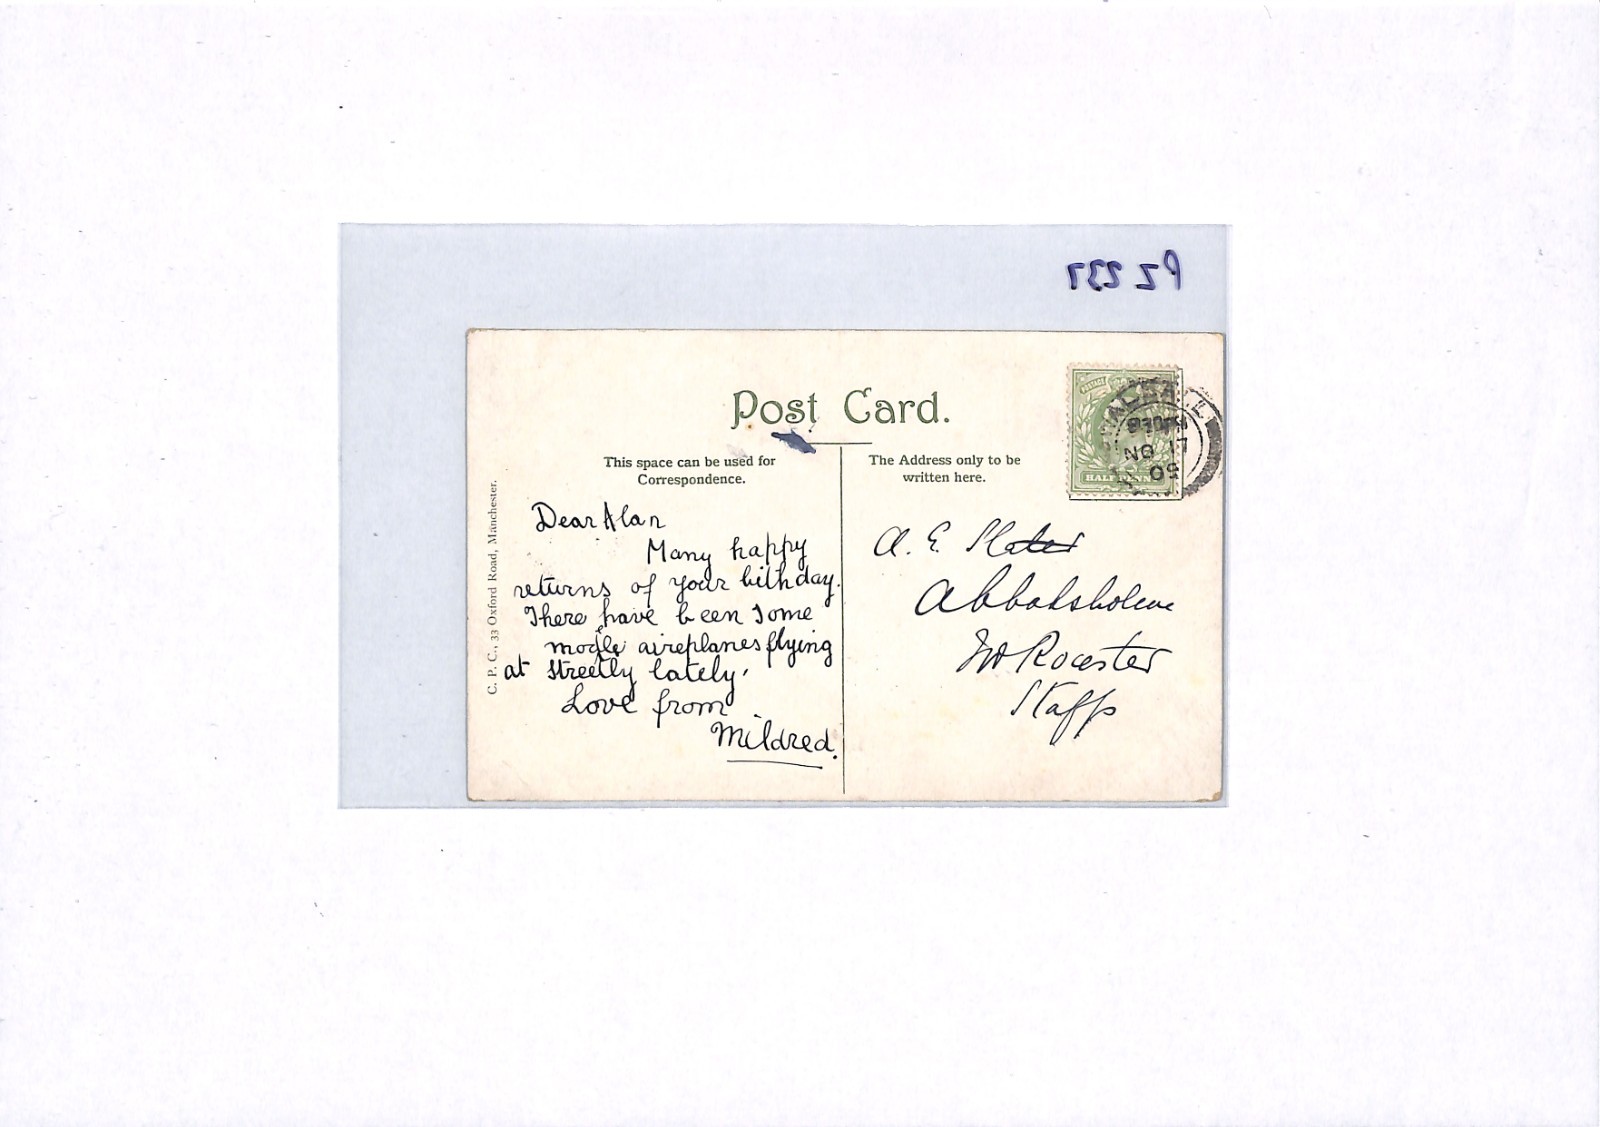 PZ 237
Post Card.
This space can be used for
Correspondence.
The Address only to be
written here.
C. P. C., 33 Oxford Road, Manchester.
Dear Alan
Many happy
returns of your bithday.
There have been some
modle aireplanes flying
at Streetly lately.
Love from
Mildred.
A. E. Slater
Abbotsholme
Nr Rocester
Staffs
POSTAGE
HALFPENNY
WALSALL
NO 17
09